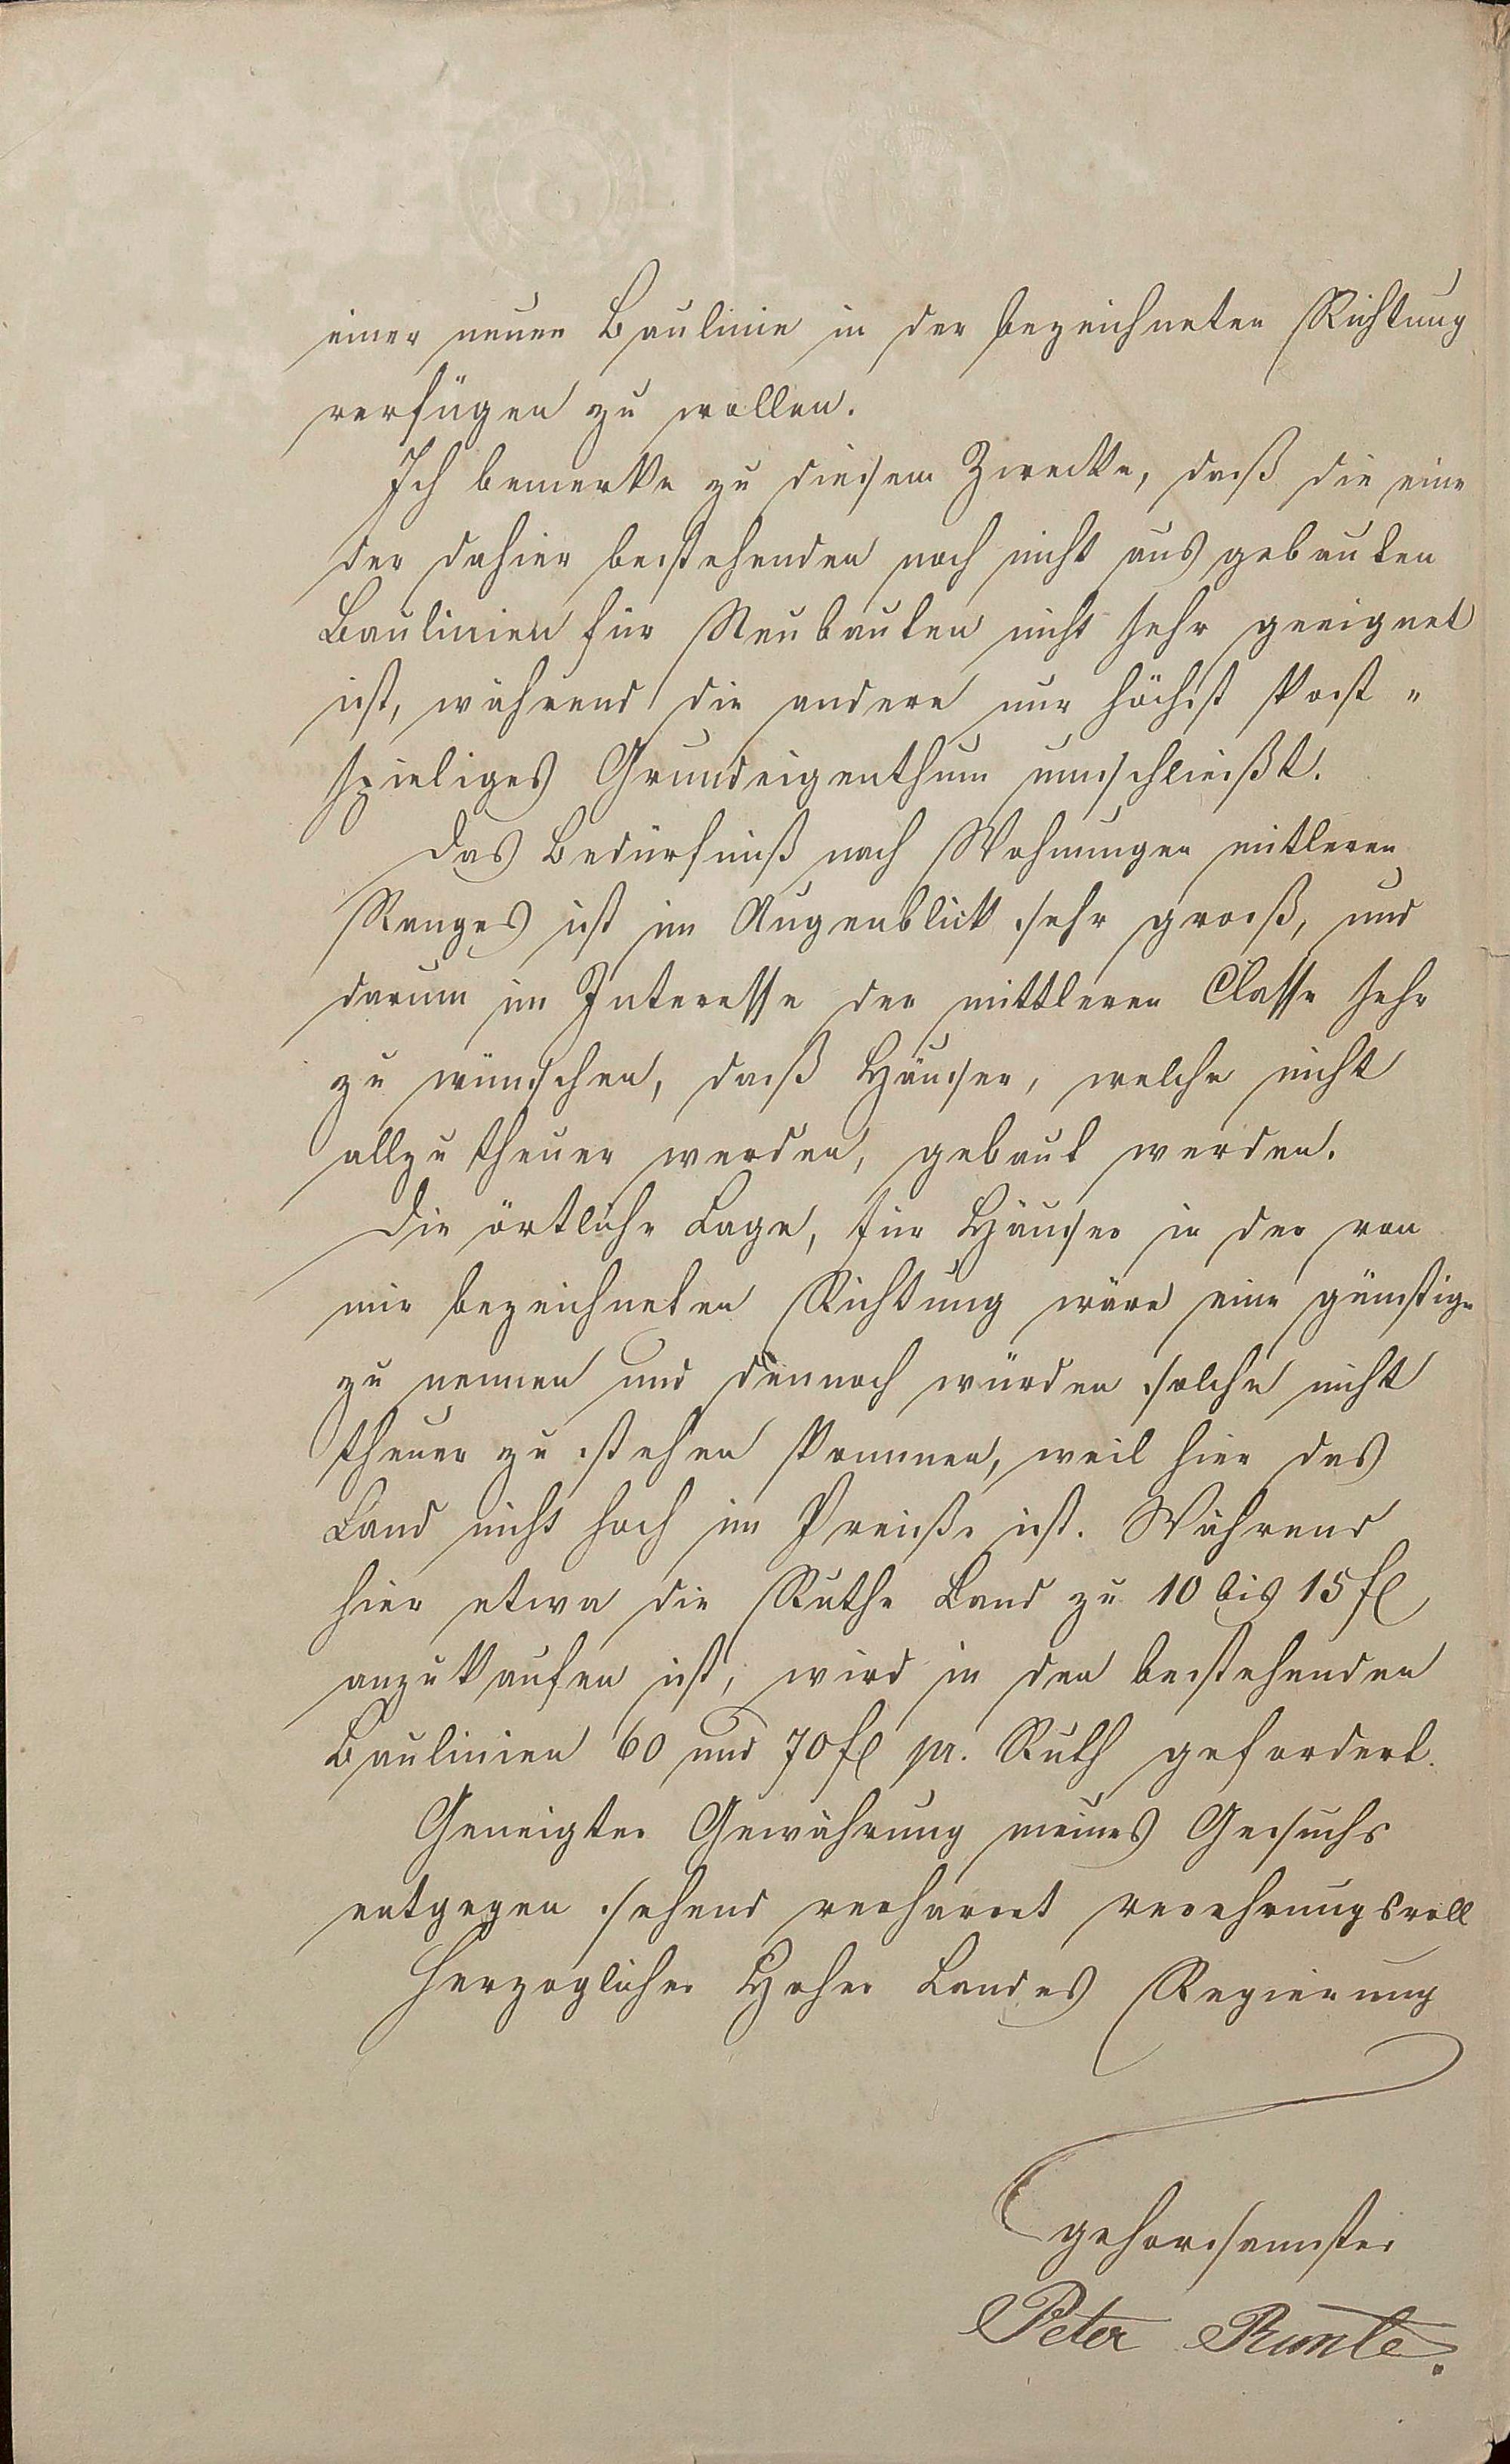 einer neuen Baulinie in der bezeichneten Richtung
verfügen zu wollen.
Ich bemerke zu diesem Zwecke, daß die eine
der dahier bestehenden noch nicht ausgebauten
Baulinien für Neubauten nicht sehr geeignet
ist, während die andere nur höchst kost„
spieliges Grundeigenthum umschließt.
Das Bedürfniß nach Wohnungen mitleren
Ranges ist im Augenblick sehr groß, und
darum im Interesse der mittleren Classe sehr
zu wünschen, daß Häuser, welche nicht
allzu theuer werden, gebaut werden.
Die örtliche Lage, für Häuser in der von
mir bezeichneten Richtung wäre eine günstige
zu nennen und dennoch würden solche nicht
theuer zu stehen kommen, weil hier das
Land nicht hoch im Preiße ist. Während
hier etwa die Ruthe Land zu 10 bis 15 fl
anzukaufen ist, wird in den bestehenden
Baulinien 60 und 70 fl pr. Ruth gefordert.
Geneigter Gewährung meines Gesuchs
entgegen sehend verharret verehrungsvoll
Herzoglicher Hoher Landes Regierung
gehorsamster
Peter Runte.